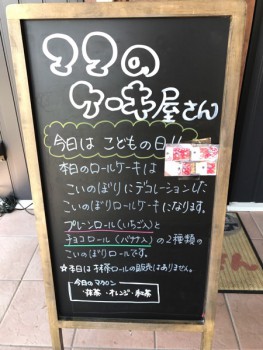 ママの
ケーキ屋さん
今日は こどもの日!!
本日のロールケーキは
こいのぼりにデコレーションした
こいのぼりロールケーキになります。
プレーンロール(いちご入)と
チョコロール(バナナ入)の2種類の
こいのぼりロールです。
☆本日は抹茶ロールの販売はありません。
今日のマカロン
・抹茶・オレンジ・紅茶